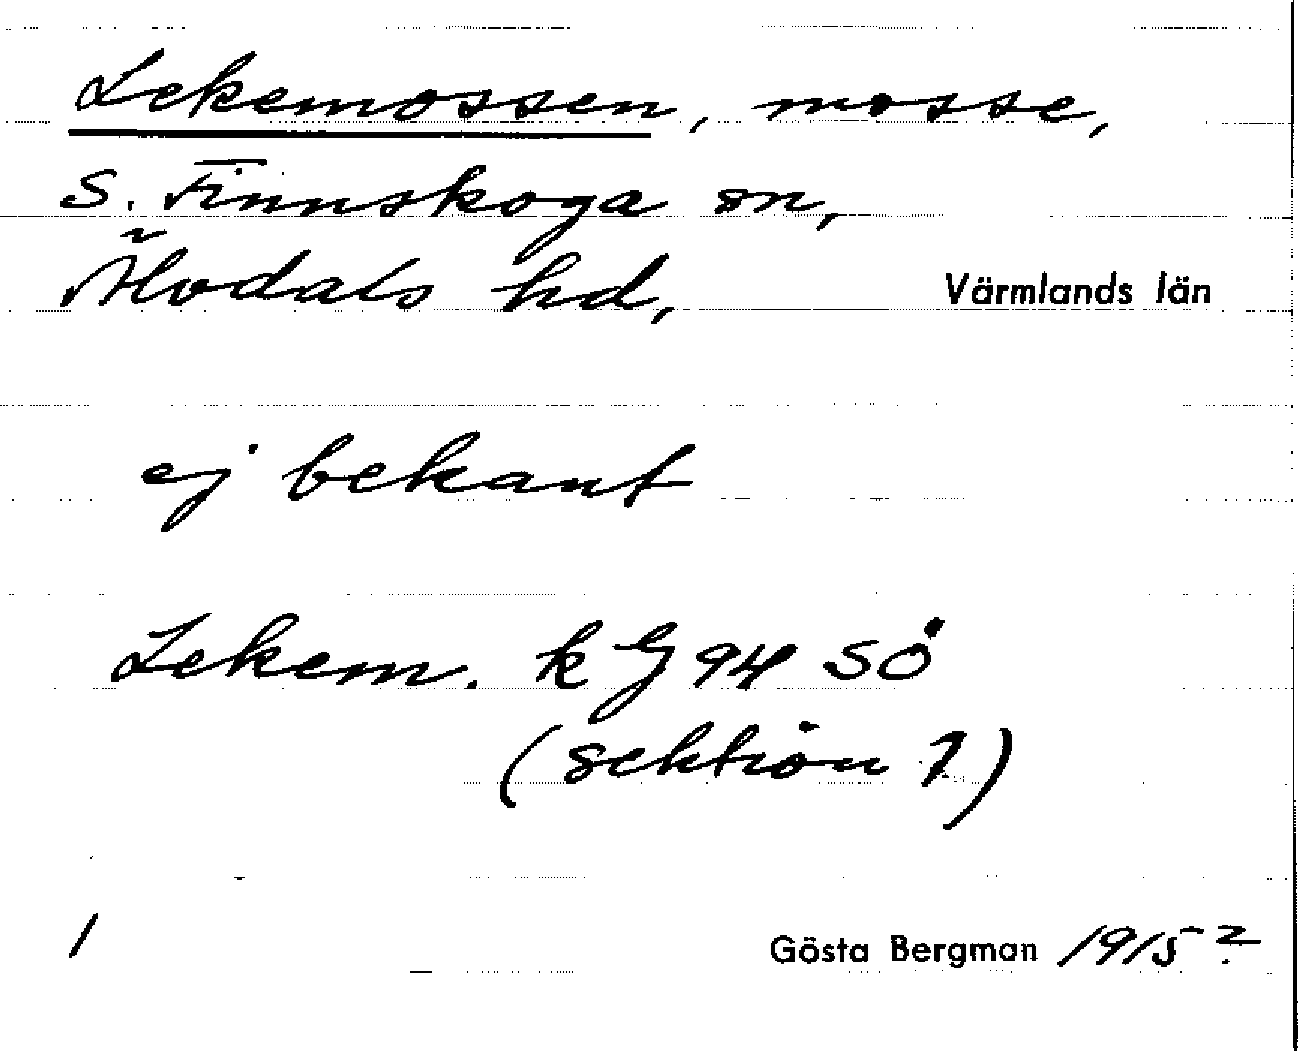 Lekemossen, mosse,
S. Finnskoga sn,
Älvdals hd, Värmlands län
ej bekant
Lekem. k G 94 SÖ
(sektion 1)
1 Gösta Bergman 1915?